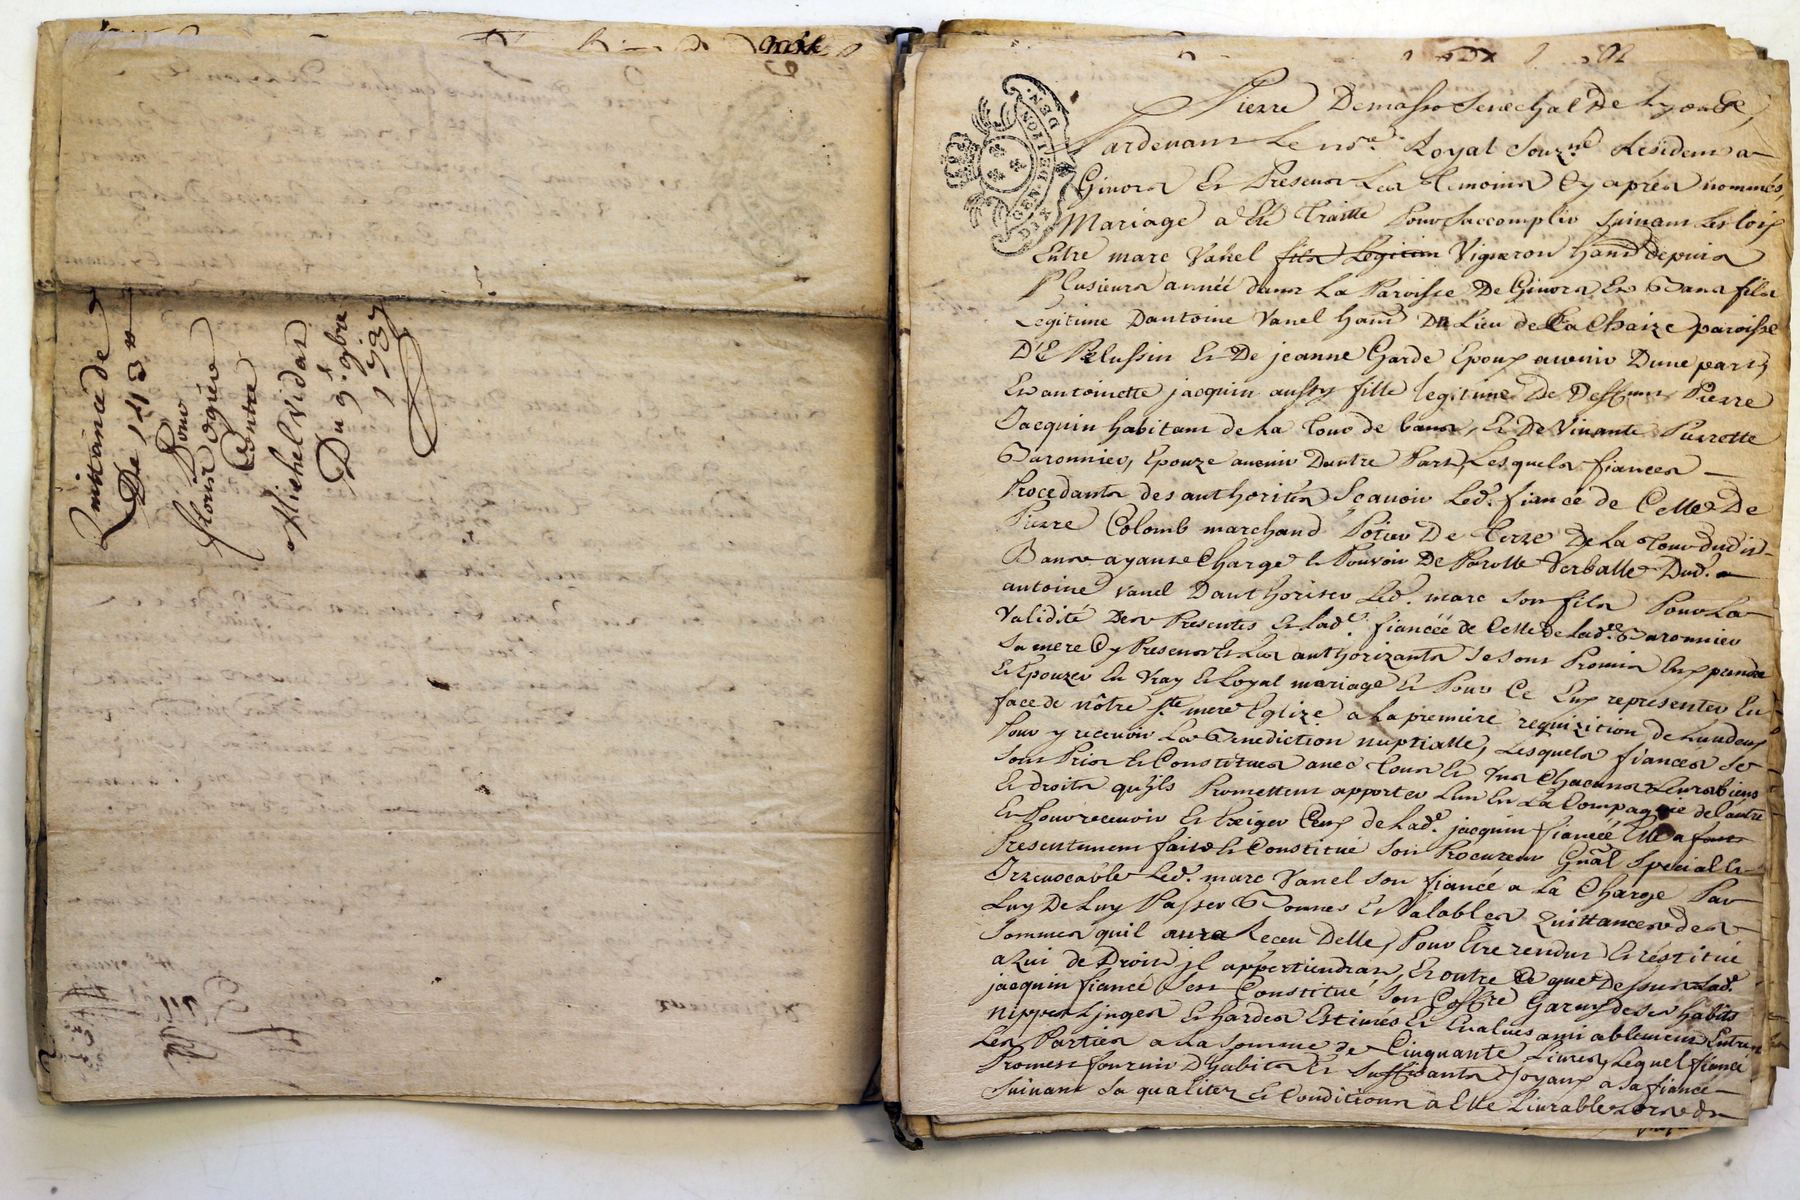 Quittance de
De 143 ##
Pour
fleury ogier
Contre
Michel Vidal
Du 9e. 9bre
1737
GEN DE LYON
Pierre Demasso Senechal De Lyon &c
Pardevant Le nore. Royal Souzné Résident a
Givors Et Presens Les temoins Cy aprés nommés,
Mariage a Eté Traitté Pour Saccomplir Suivant Les loix
Entre marc Vanel fils Legitim Vigneron habnt depuis
Plusieurs année dans La Paroisse De Givors Et Bans fils
Legitime Dantoine Vanel habnt Du Lieu de La Chaize paroisse
DE Pelussin Et De jeanne Garde Epoux avenir Dune part,
Et antoinette jacquin aussy fille legitime De Deffunt Pierre
Jacquin habitant de La Tour de bans, Et De Vivante Pierrotte
Baronnier, Epouze avenir Dautre Part, Lesquels fiances
Procedants des authorités Sçavoir Led. fiancé de Celle De
Pierre Colomb marchand Potier De Terre De La Tour dudit
Bans ayant Charge et Pouvoir De Parolle Verballe Dud.
antoine Vanel Dauthoriser Led. marc Son fils Pour La
Validité Des Presentes Et Lade. fiancée de Celle de Lade. Baronnier
Sa mere Cy Presente Et Les authorizants Se Sont Promis Eux prendre
Et Epouzer En Vray Et Loyal mariage Et Pour Ce Eux representer En
face de nôtre Ste mere Eglize a La premiere requizition de Lun deux
Pour y recevoir La Benediction nuptialle, Lesquels fiances Se
Sont Pris Et Constitues avec Tous Et Uns Chacuns Leurs biens
Et droits quils Promettent apporter Lun En La Compagnie de Lautre
Et Pour recevoir Et Exiger Ceux de Lade. jacquin fiancée Elle a fait
Presentement fait Et Constitué Son Procureur Gnãl Special Et
Irrevocable Led. marc Vanel Son fiancé a La Charge Par
Luy De Luy Passer Bonnes Et Valables Quittances des
Sommes quil aura Receu Delle, Pour Etre rendus Et réstitué
a Qui de Droit il appartiendrat, Et outre Ce que Dessus Lade.
jacquin fiancé Sest Constitué Son Coffre Garny de Ses habits
Nippes Linges Et hardes Estimés Et Evalues amiablement Entre
Les Parties a La Somme de Cinquante Livres, Lequel fiancé
Promet fournir Dhabits Et Suffizants Joyaux a Sa fiancée
Suivant Sa qualitez Et Conditions a Elle Livrable Lors de